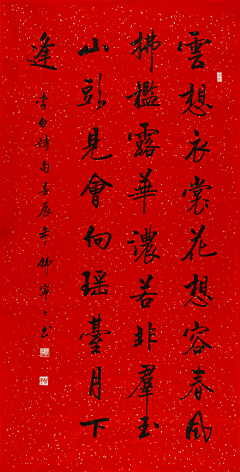 雲想衣裳花想容春风
拂檻露華濃若非羣玉
山頭見會向瑶臺月下
逢
李白詩句壬辰年